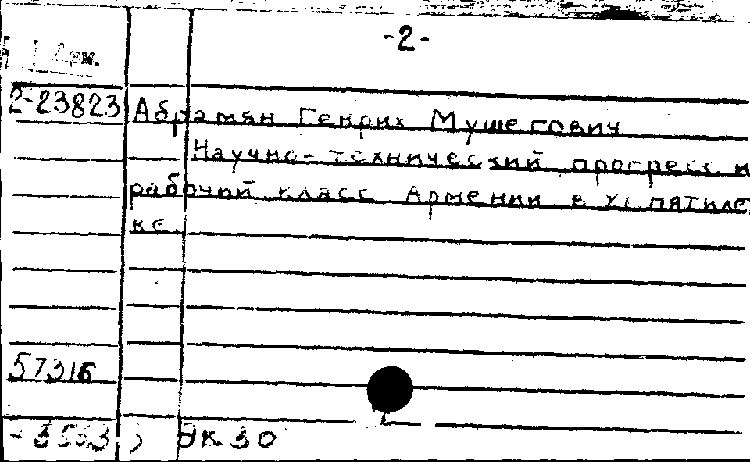 -2-
2-23823 Абрамян Генрих Мушегович
Научно-технический прогресс и
рабочий класс Армении в XI пятиле
ке.
57316
ЭК 30